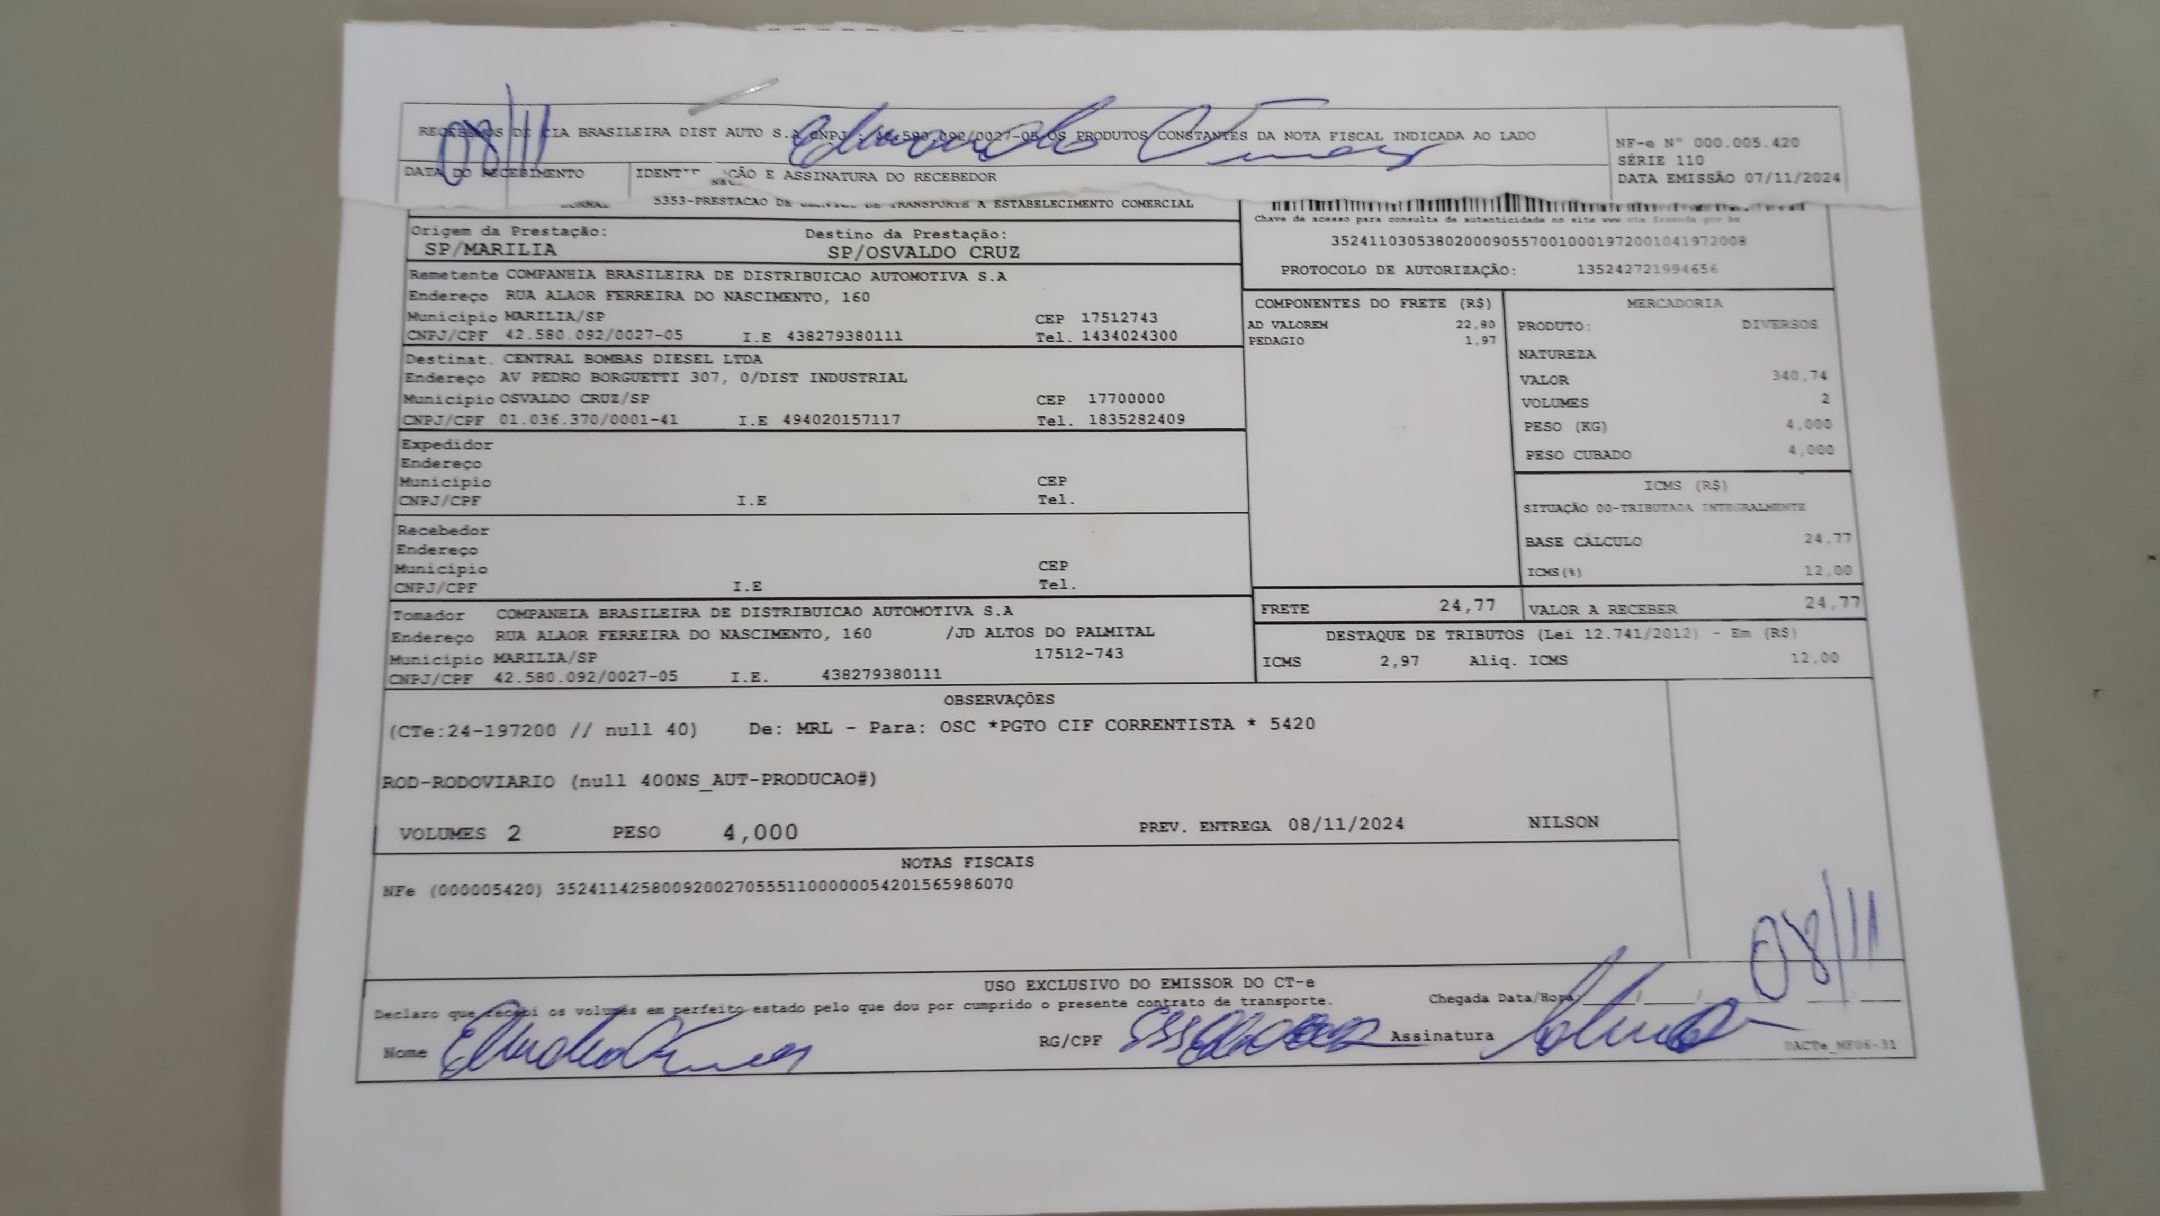 RECEBEMOS DE CIA BRASILEIRA DIST AUTO S.A CNPJ : 42.580.092/0027-05 OS PRODUTOS CONSTANTES DA NOTA FISCAL INDICADA AO LADO
08/11
NF-e Nº 000.005.420
SÉRIE 110
DATA EMISSÃO 07/11/2024
DATA DO RECEBIMENTO IDENT ÇÃO E ASSINATURA DO RECEBEDOR
5353-PRESTACAO DE TRANSPORTE A ESTABELECIMENTO COMERCIAL
Chave de acesso para consulta de autenticidade no site www cte fazenda gov br
35241103053802000905570010001972001041972008
PROTOCOLO DE AUTORIZAÇÃO: 135242721994656
Origem da Prestação: Destino da Prestação:
SP/MARILIA SP/OSVALDO CRUZ
Remetente COMPANHIA BRASILEIRA DE DISTRIBUICAO AUTOMOTIVA S.A
Endereço RUA ALAOR FERREIRA DO NASCIMENTO, 160
Município MARILIA/SP CEP 17512743
CNPJ/CPF 42.580.092/0027-05 I.E 438279380111 Tel. 1434024300
Destinat. CENTRAL BOMBAS DIESEL LTDA
Endereço AV PEDRO BORGUETTI 307, 0/DIST INDUSTRIAL
Município OSVALDO CRUZ/SP CEP 17700000
CNPJ/CPF 01.036.370/0001-41 I.E 494020157117 Tel. 1835282409
Expedidor
Endereço
Município CEP
CNPJ/CPF I.E Tel.
Recebedor
Endereço
Município CEP
CNPJ/CPF I.E Tel.
Tomador COMPANHIA BRASILEIRA DE DISTRIBUICAO AUTOMOTIVA S.A
Endereço RUA ALAOR FERREIRA DO NASCIMENTO, 160 /JD ALTOS DO PALMITAL
Município MARILIA/SP 17512-743
CNPJ/CPF 42.580.092/0027-05 I.E. 438279380111
COMPONENTES DO FRETE (R$)
AD VALOREM 22,80
PEDAGIO 1,97
MERCADORIA
PRODUTO: DIVERSOS
NATUREZA
VALOR 340,74
VOLUMES 2
PESO (KG) 4,000
PESO CUBADO 4,000
ICMS (R$)
SITUAÇÃO 00-TRIBUTADA INTEGRALMENTE
BASE CÁLCULO 24,77
ICMS(%) 12,00
FRETE 24,77 VALOR A RECEBER 24,77
DESTAQUE DE TRIBUTOS (Lei 12.741/2012) - Em (R$)
ICMS 2,97 Aliq. ICMS 12,00
OBSERVAÇÕES
(CTe:24-197200 // null 40) De: MRL - Para: OSC *PGTO CIF CORRENTISTA * 5420
ROD-RODOVIARIO (null 400NS_AUT-PRODUCAO#)
VOLUMES 2 PESO 4,000 PREV. ENTREGA 08/11/2024 NILSON
NOTAS FISCAIS
NFe (000005420) 35241142580092002705551100000054201565986070
08/11
USO EXCLUSIVO DO EMISSOR DO CT-e
Declaro que recebi os volumes em perfeito estado pelo que dou por cumprido o presente contrato de transporte. Chegada Data/Hora: / /
Nome RG/CPF Assinatura
DACTe_MF06-31